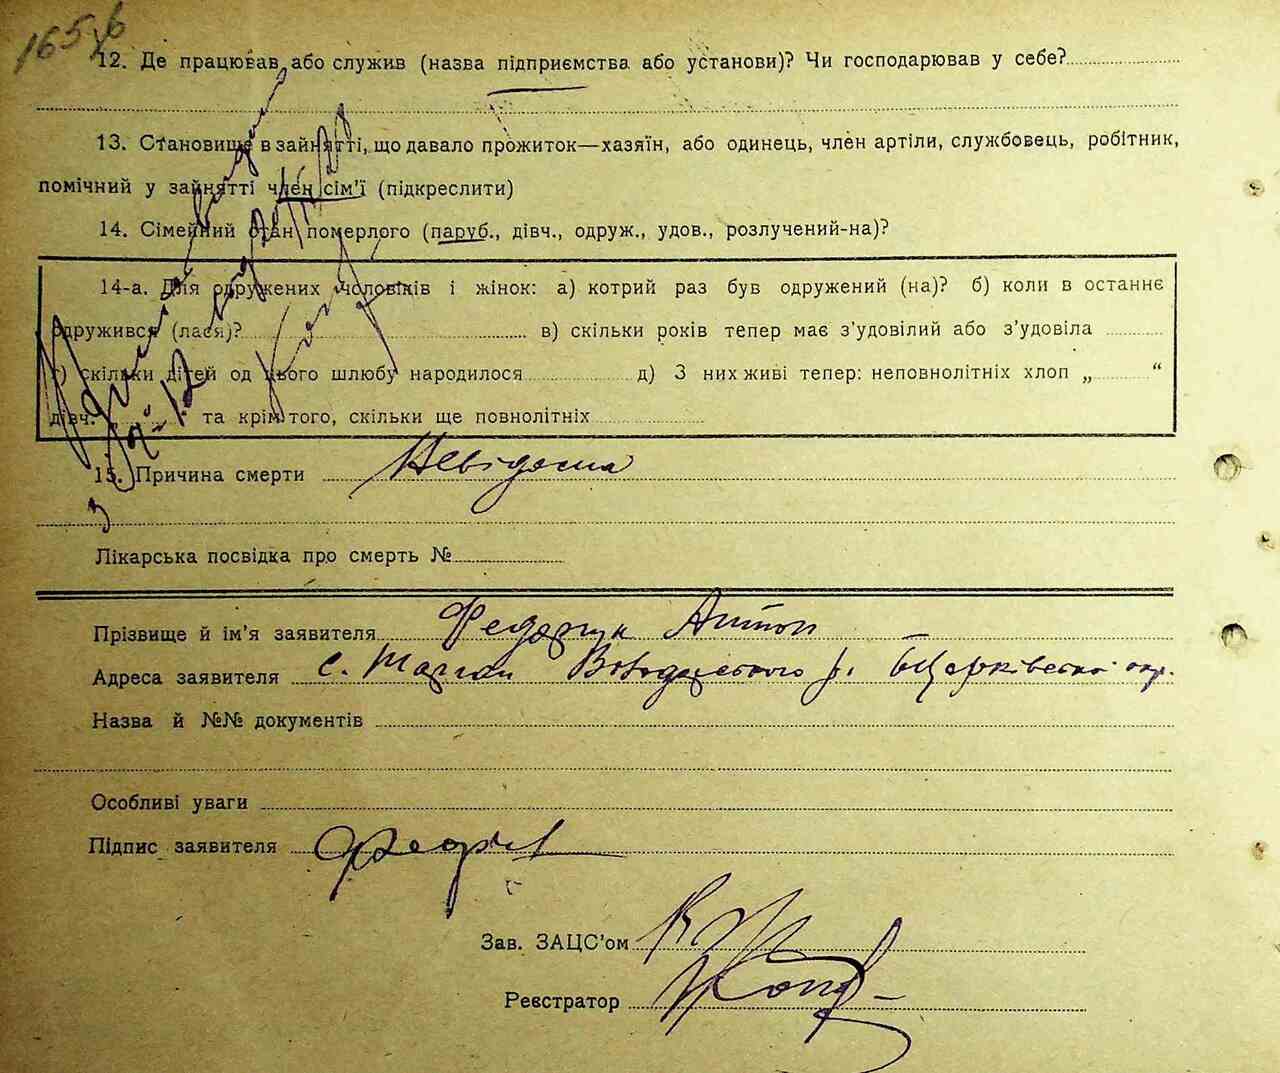 12. Де працював або служив (назва підприємства або установи)? Чи господарював у себе?
13. Становище в зайнятті, що давало прожиток—хазяїн, або одинець, член артіли, службовець, робітник,
помічний у зайнятті член сім'ї (підкреслити)
14. Сімейний стан померлого (паруб., дівч., одруж., удов., розлучений-на)?
14-а. Для одружених чоловіків і жінок: а) котрий раз був одружений (на)? б) коли в останнє
одружився (лася)? в) скільки років тепер має з'удовілий або з'удовіла
г) скільки дітей од цього шлюбу народилося д) З них живі тепер: неповнолітніх хлоп „ “
дівч. та крім того, скільки ще повнолітніх
15. Причина смерти Невідома
Лікарська посвідка про смерть №
Прізвище й ім'я заявителя Федорчук Антон
Адреса заявителя с. Володарського р. Б Церківської окр.
Назва й №№ документів
Особливі уваги
Підпис заявителя
Зав. ЗАЦС'ом
Реєстратор